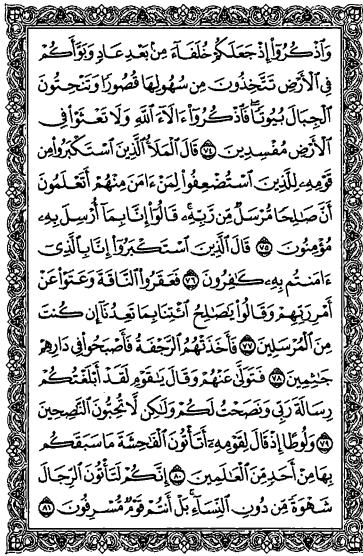 وَاذْكُرُوا إِذْ جَعَلَكُمْ خُلَفَاءَ مِنْ بَعْدِ عَادٍ وَبَوَّأَكُمْ
فِي الْأَرْضِ تَتَّخِذُونَ مِنْ سُهُولِهَا قُصُورًا وَتَنْحِتُونَ
الْجِبَالَ بُيُوتًا فَاذْكُرُوا ءَالَاءَ اللَّهِ وَلَا تَعْثَوْا فِي
الْأَرْضِ مُفْسِدِينَ ٧٤ قَالَ الْمَلَأُ الَّذِينَ اسْتَكْبَرُوا مِنْ
قَوْمِهِ لِلَّذِينَ اسْتُضْعِفُوا لِمَنْ ءَامَنَ مِنْهُمْ أَتَعْلَمُونَ
أَنَّ صَالِحًا مُرْسَلٌ مِنْ رَبِّهِ قَالُوا إِنَّا بِمَا أُرْسِلَ بِهِ
مُؤْمِنُونَ ٧٥ قَالَ الَّذِينَ اسْتَكْبَرُوا إِنَّا بِالَّذِي
ءَامَنْتُمْ بِهِ كَافِرُونَ ٧٦ فَعَقَرُوا النَّاقَةَ وَعَتَوْا عَنْ
أَمْرِ رَبِّهِمْ وَقَالُوا يَاصَالِحُ ائْتِنَا بِمَا تَعِدُنَا إِنْ كُنْتَ
مِنَ الْمُرْسَلِينَ ٧٧ فَأَخَذَتْهُمُ الرَّجْفَةُ فَأَصْبَحُوا فِي دَارِهِمْ
جَاثِمِينَ ٧٨ فَتَوَلَّى عَنْهُمْ وَقَالَ يَاقَوْمِ لَقَدْ أَبْلَغْتُكُمْ
رِسَالَةَ رَبِّي وَنَصَحْتُ لَكُمْ وَلَكِنْ لَا تُحِبُّونَ النَّاصِحِينَ
٧٩ وَلُوطًا إِذْ قَالَ لِقَوْمِهِ أَتَأْتُونَ الْفَاحِشَةَ مَا سَبَقَكُمْ
بِهَا مِنْ أَحَدٍ مِنَ الْعَالَمِينَ ٨٠ إِنَّكُمْ لَتَأْتُونَ الرِّجَالَ
شَهْوَةً مِنْ دُونِ النِّسَاءِ بَلْ أَنْتُمْ قَوْمٌ مُسْرِفُونَ ٨١